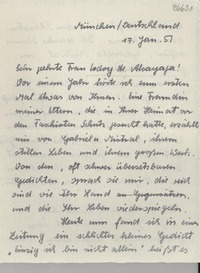 26631
München/Deutschland
17. Jan. 51
Sehr geehrte Frau Godoy de Alcayaga!
Vor einem Jahr hörte ich zum ersten
Mal etwas von Ihnen. Eine Freundin
meiner Eltern, die in Ihrer Heimat vor
den Faschisten Schutz gesucht hatte, erzählte
mir von Gabriela Mistral, ihrem
stillen Leben und ihrem großen Werk.
Von den, oft schwer übersetzbaren
Gedichten, sprach sie mir, die reich
sind wie Ihr Land an Gegensätzen,
und die Ihr Leben wiederspiegeln.
Heute nun fand ich in einer
Zeitung ein schlichtes kleines Gedicht
"Einzig ich bin nicht allein" heißt es